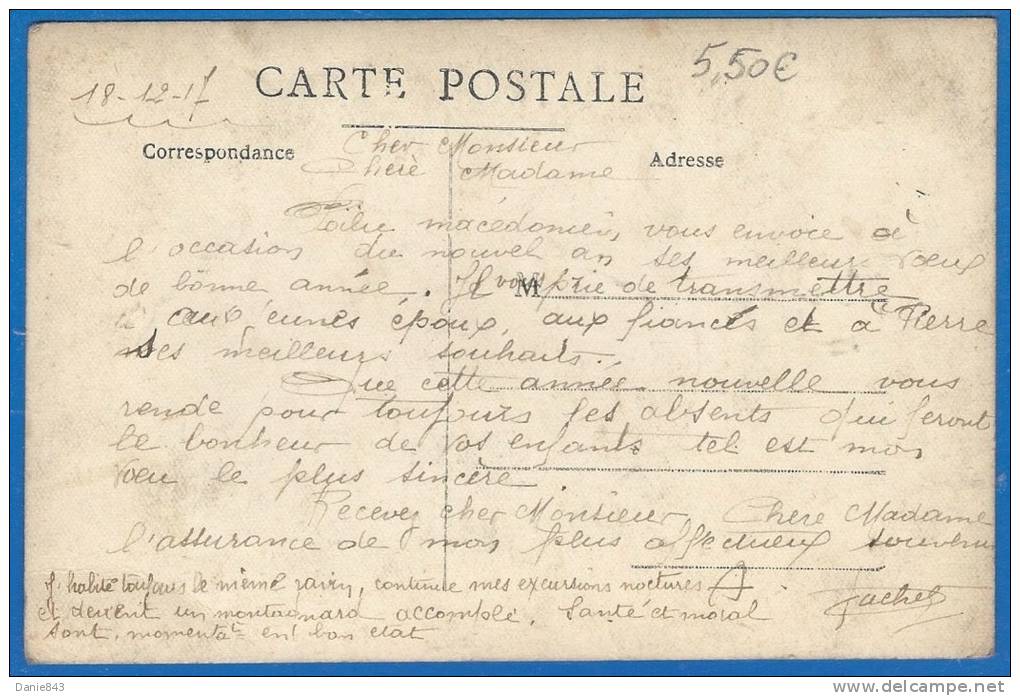 5,50€
18-12-17
CARTE POSTALE
Correspondance
Adresse
Cher Monsieur
Chère Madame
Poilu macédonien, vous envoie à
l'occasion du nouvel an ses meilleurs voeux
de bonne année. Il vous M prie de transmettre
aux jeunes époux, aux fiancés et à Pierre
ses meilleurs souhaits.
Que cette année nouvelle vous
rende pour toujours les absents qui feront
le bonheur de vos enfants tel est mon
voeu le plus sincère.
Recevez cher Monsieur, Chere Madame
l'assurance de mon plus affectueux souvenir
J'habite toujours le même ravin, continue mes excursions noctures
et devient un montagnard accomble. Santé et moral
sont, momentà en bon etat
Danie843
www.delcampe.net